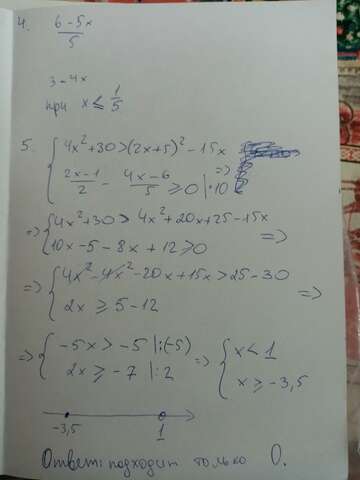 4. (6-5x)/5
3-4x
при x ≤ 1/5
5. { 4x²+30>(2x+5)²-15x
(2x-1)/2 - (4x-6)/5 ≥ 0 |·10 =>
=> { 4x²+30 > 4x²+20x+25-15x
10x-5-8x+12≥0 =>
=> { 4x²-4x²-20x+15x>25-30
2x ≥ 5-12 =>
=> { -5x > -5 |:(-5) => { x < 1
2x ≥ -7 |:2 x ≥ -3,5
-3,5 1
Ответ: подходит только 0.